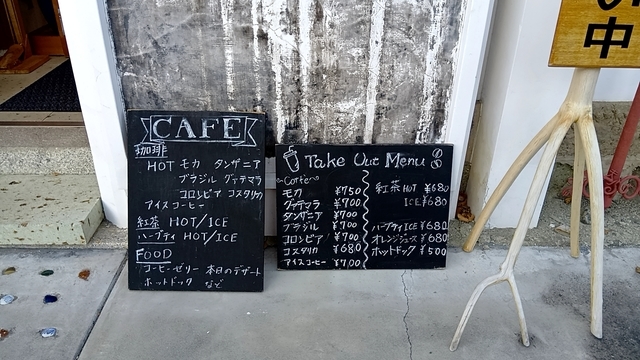 CAFE
珈琲
HOT モカ タンザニア
ブラジル グァテマラ
コロンビア コスタリカ
アイスコーヒー
紅茶 HOT/ICE
ハーブティ HOT/ICE
FOOD
コーヒーゼリー 本日のデザート
ホットドック など
Take Out Menu
モカ ¥750
グァテマラ ¥700
タンザニア ¥700
ブラジル ¥700
コロンビア ¥700
コスタリカ ¥680
アイスコーヒー ¥700
紅茶 HOT ¥680
ICE ¥680
ハーブティ ICE ¥680
オレンジジュース ¥680
ホットドック ¥500
中